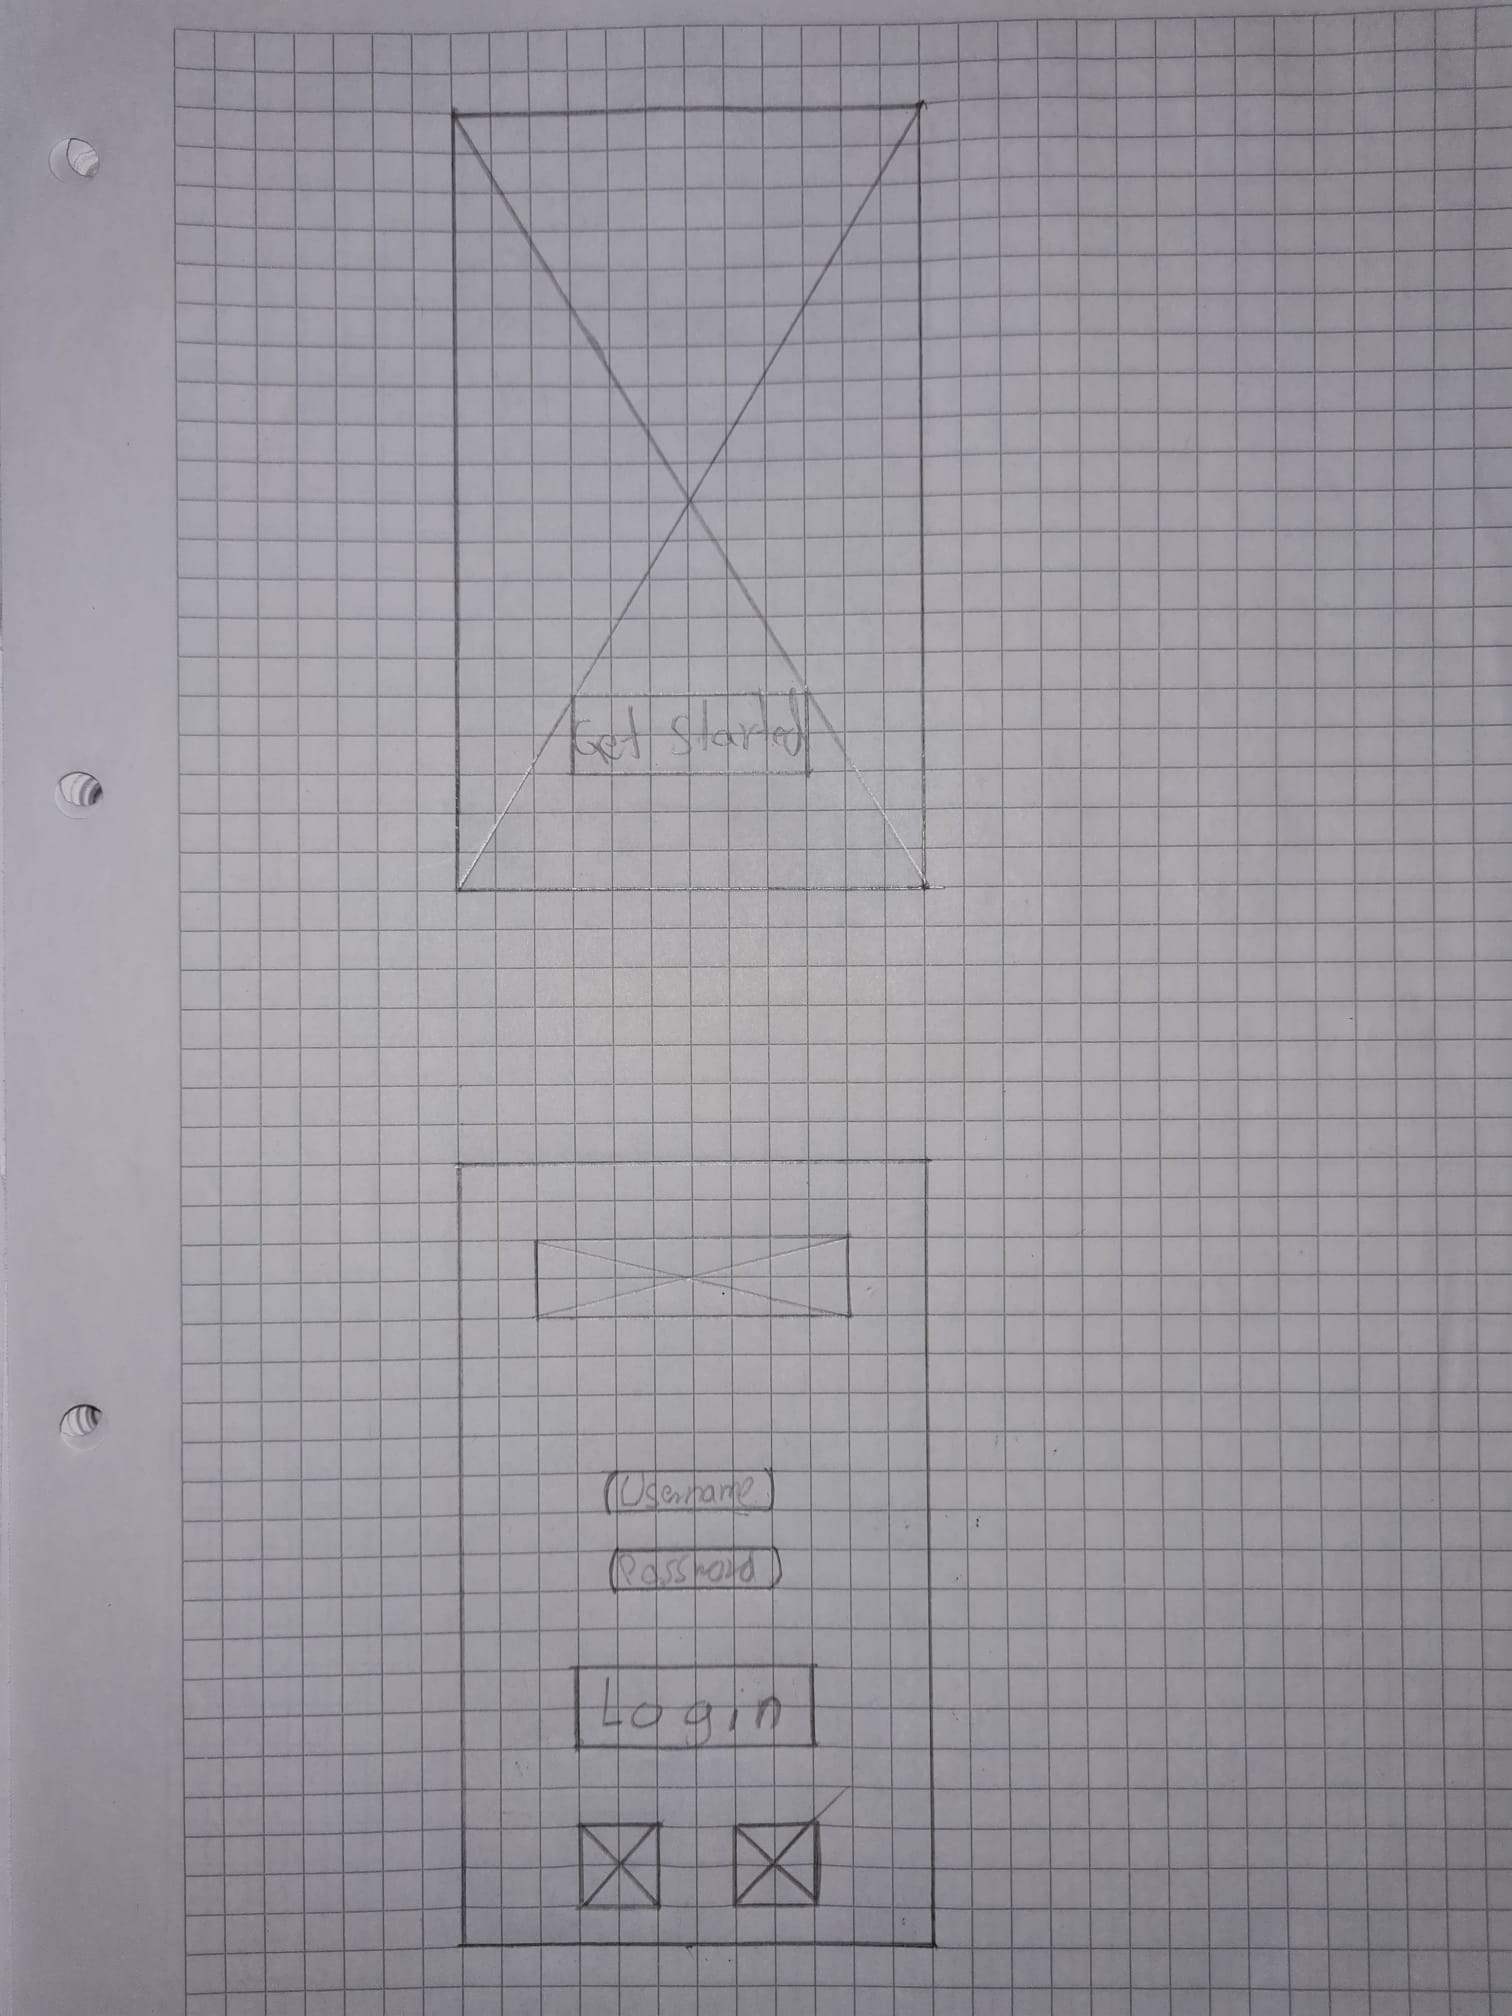 Get Started
Username
Password
Login